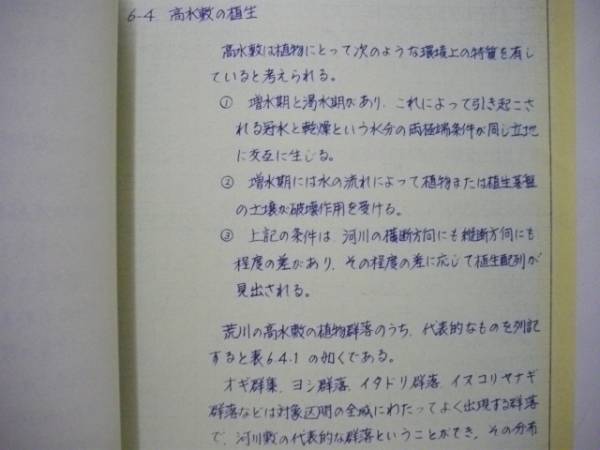 6-4 高水敷の植生
高水敷は植物にとって次のような環境上の特質を有し
ていると考えられる。
① 増水期と渇水期があり、これによって引き起こさ
れる冠水と乾燥という水分の両極端条件が同じ立地
に交互に生じる。
② 増水期には水の流れによって植物または植生基盤
の土壌が破壊作用を受ける。
③ 上記の条件は、河川の横断方向にも縦断方向にも
程度の差があり、その程度の差に応じて植生配列が
見出される。
荒川の高水敷の植物群落のうち、代表的なものを列記
すると表6.4.1の如くである。
オギ群集、ヨシ群落、イタドリ群落、イヌコリヤナギ
群落などは対象区間の全域にわたってよく出現する群落
で、河川敷の代表的な群落ということができ、その分布